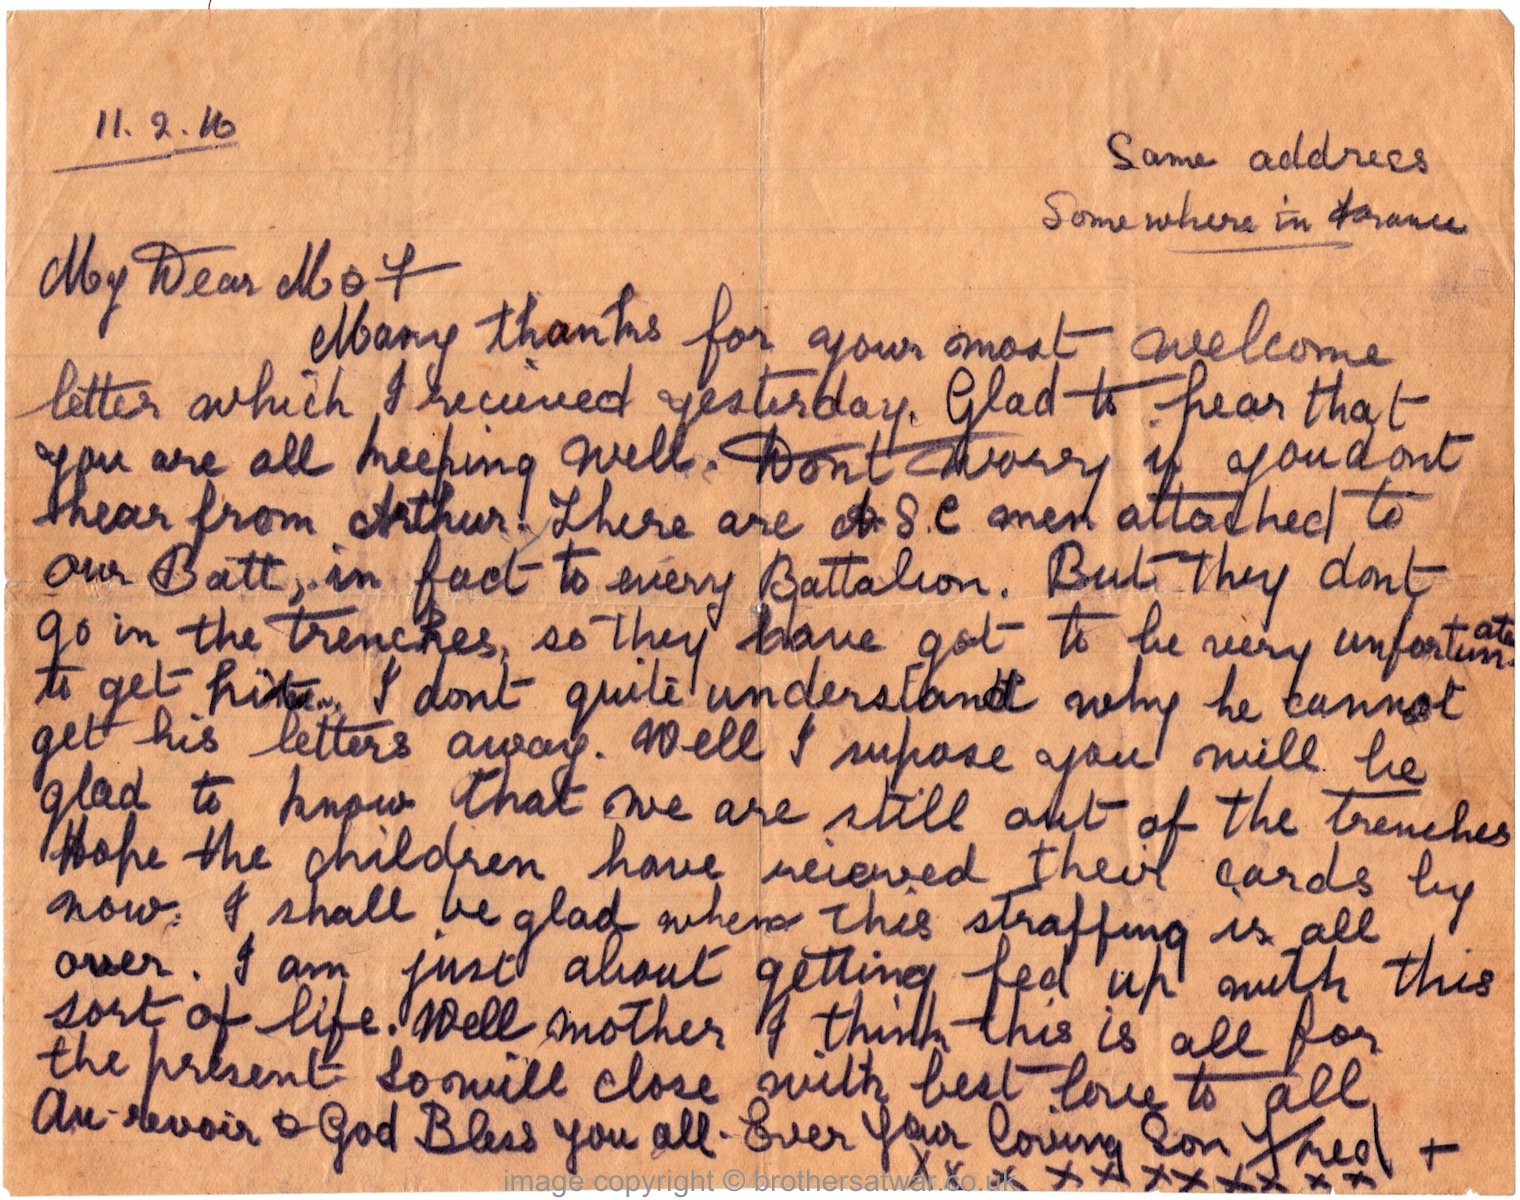 11. 2. 16
Same address
Somewhere in France
My Dear M & F
Many thanks for your most welcome
letter which I recieved yesterday. Glad to hear that
you are all keeping well. Dont worry if you dont
hear from Arthur. There are A.S.C men attached to
our Batt, in fact to every Battalion. But they dont
go in the trenches, so they have got to be very unfortunate
to get hit. I dont quite understand why he cannot
get his letters away. Well I supose you will be
glad to know that we are still out of the trenches
Hope the children have recieved their cards by
now. I shall be glad when this straffing is all
over. I am just about getting fed up with this
sort of life. Well mother I think this is all for
the present so will close with best love to all
Au-revoir & God Bless you all. Ever Your loving Son Fred +
x x x x x x x x x x x
image copyright © brothersatwar.co.uk